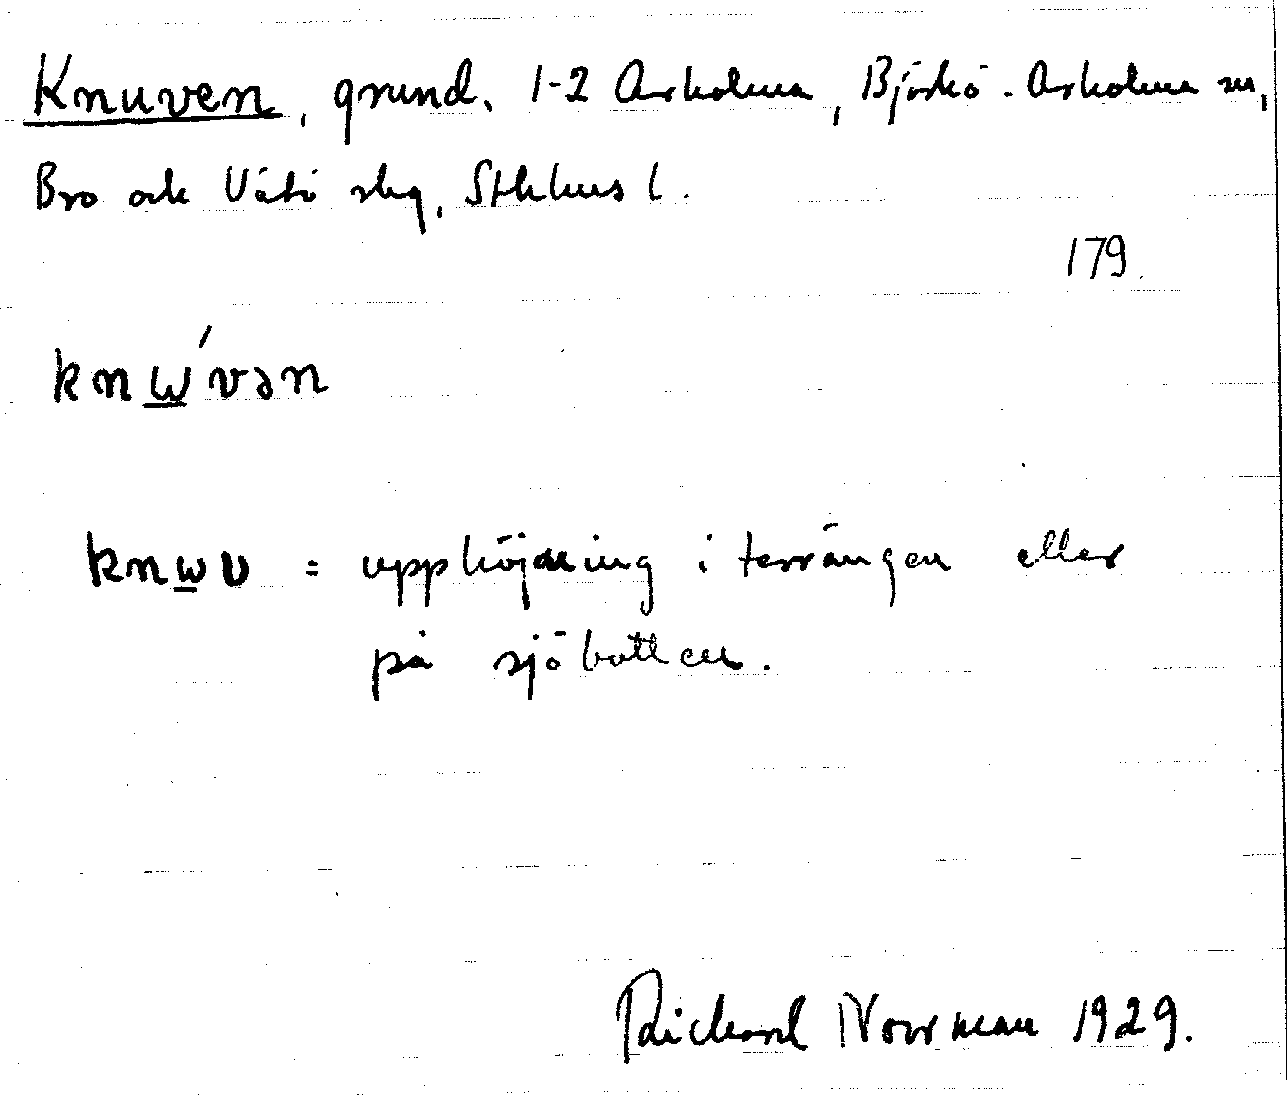 Knuven, grund. 1-2 Arholma, Björkö-Arholma sn,
Bro och Vätö skg, Sthlms l.
179.
knɯ́vən
knɯv = upphöjning i terrängen eller
på sjöbotten.
Richard Norrman 1929.